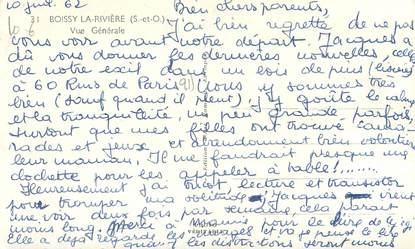 10 juil. 62
31 BOISSY-LA-RIVIÈRE (S.-et-O.)
Vue Générale
Bien chers parents,
J'ai bien regretté de ne pas
vous voir avant notre départ. Jacques a
dû vous donner les dernières nouvelles, celles
de notre exil dans un bois de pins (lisière)
à 60 Kms de Paris (91) (nous y sommes très
bien (sauf quand il pleut). J'y goûte le calme
et la tranquillité, un peu grande parfois,
surtout que mes filles ont trouvé cama-
rades et jeux et abandonnent bien volontiers
leur maman. Il me faudrait presque une
clochette pour les appeler à table!......
Heureusement j'ai tricot, lecture et transistor
pour tromper ma solitude. Jacques vient
nous voir deux fois par semaine, cela paraît
moins long. Merci à Maman pour le livre de
Elle a déjà regardé les images et va je pense le lire
quand les distractions seront moins